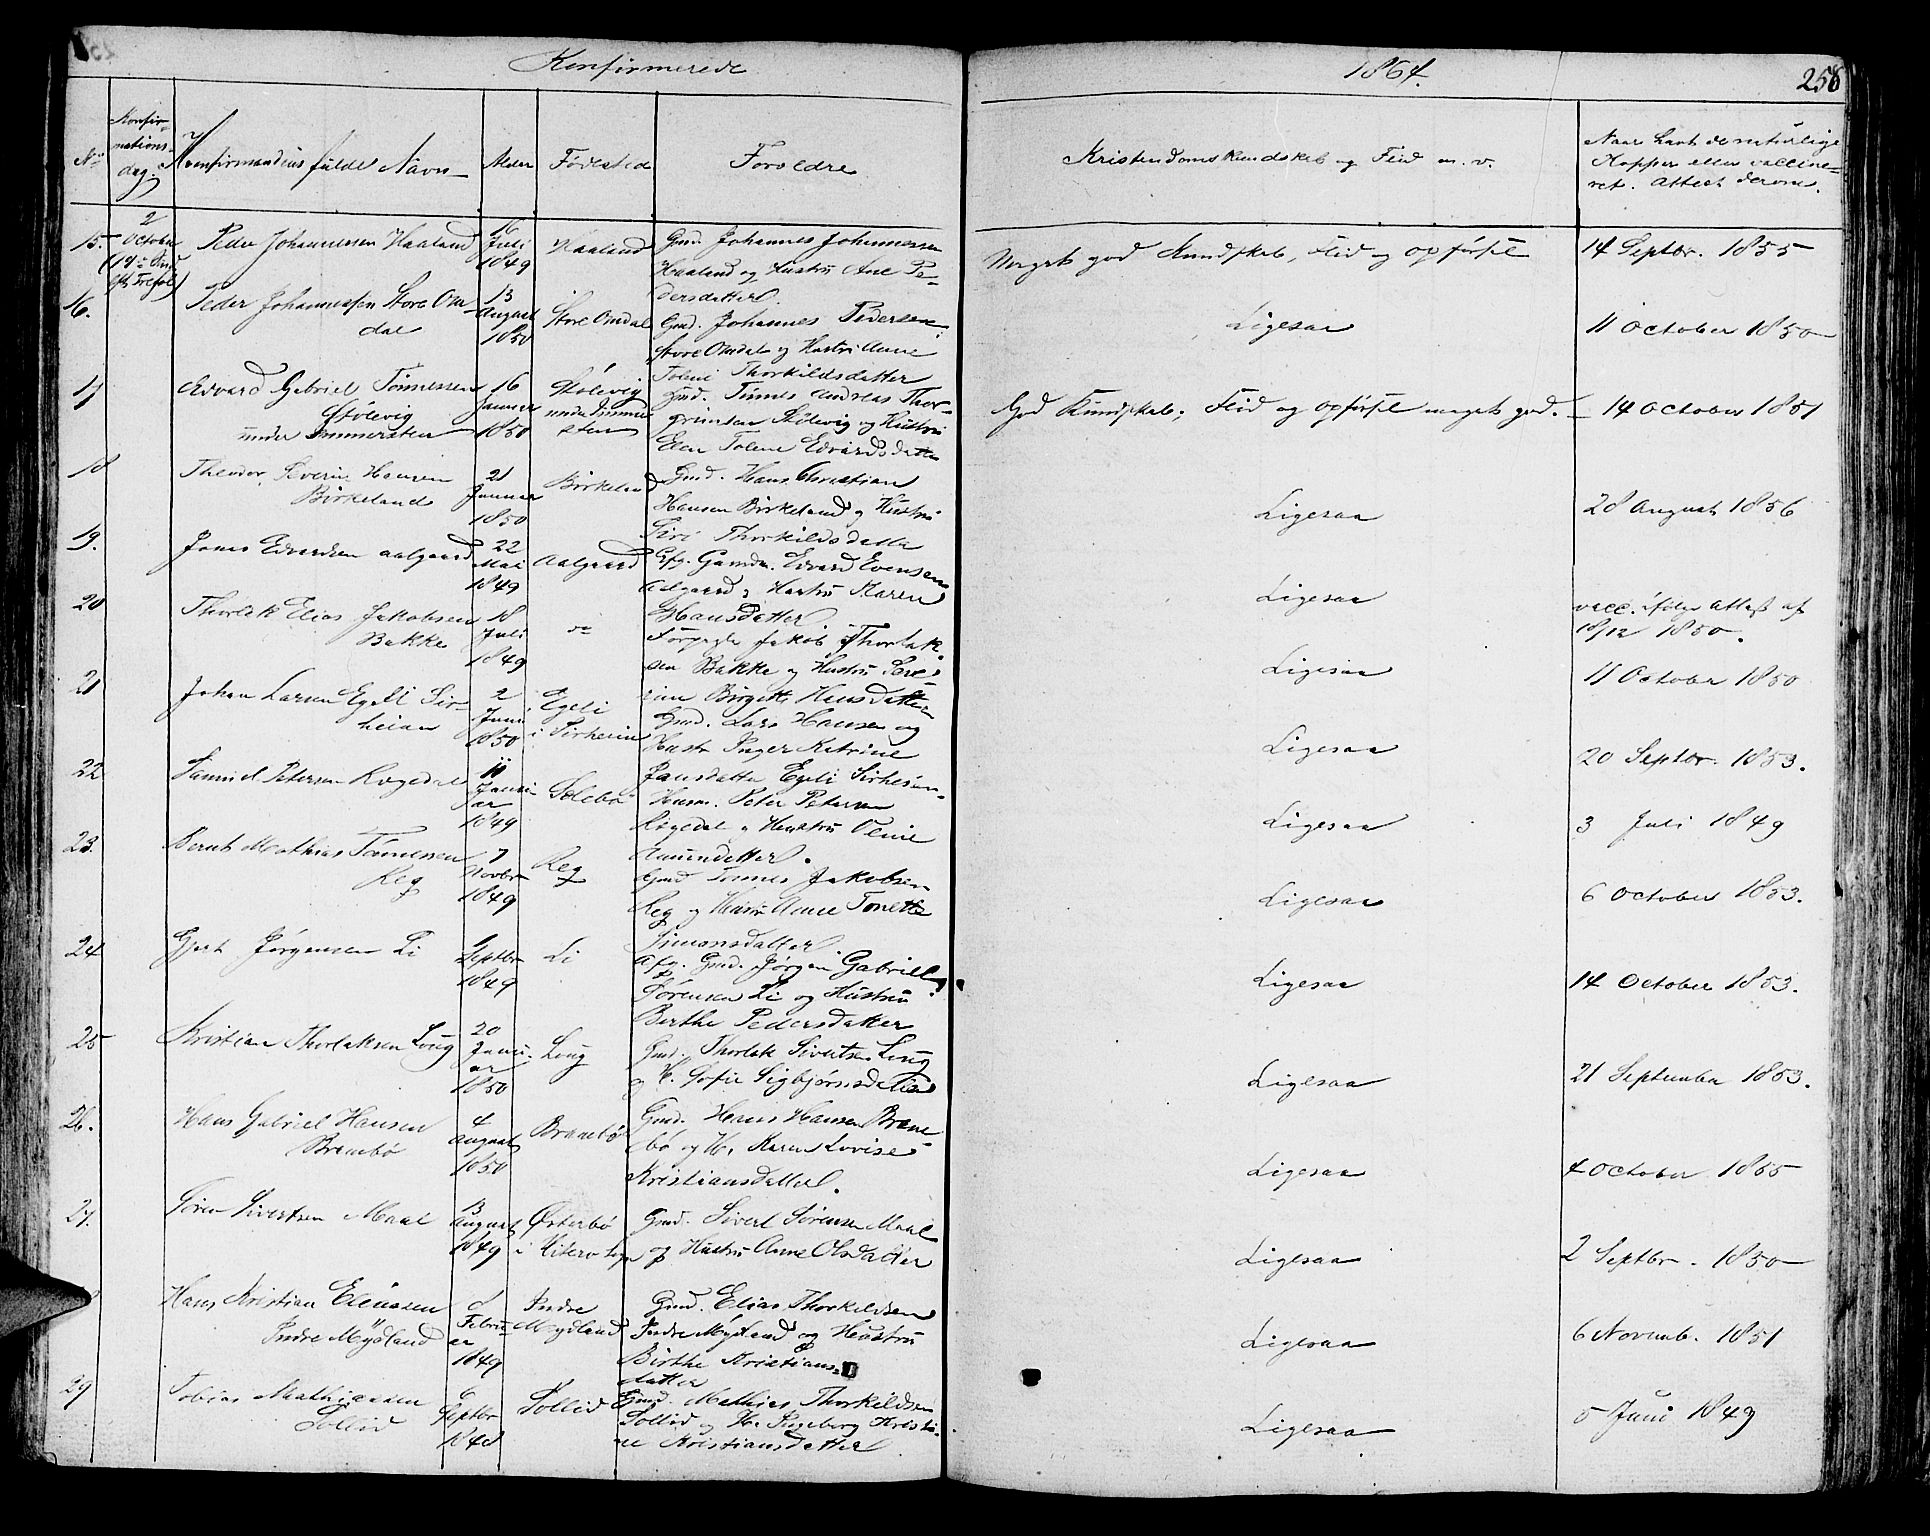 Konfirmerede
1864.
258
No
Konfir-
mations-
dag.
Konfirmandens fulde Navn
Alder
Födested
Forældre
Kristendomskundskab og Flid m. v.
Naar havt de naturlige
Kopper eller vaccine-
ret. Attest derom.
15.
2
October
(19de Sönd.
eft. Trefol.)
Peder Johannessen Haaland
16
Juli
1849
Haaland
Gmd. Johannes Johannessen
Haaland og Hustru Ane Pe-
dersdatter.
Meget god Kundskab, Flid og opförsel
14 Septbr. 1855
16.
Peder Johannessen Store Om-
dal
13
August
1850
Store Omdal
Gmd. Johannes Pedersen
Store Omdal og Hustru Anne
Tolene Thorkildsdatter
Ligesaa
11 October 1850
17
Edvard Gabriel Tönnessen
Stölevig
under Immersten
16
Januar
1850
Stölevig
under Immer
sten
Gmd. Tönnes Andreas Thor-
grimsen Stölevig og Hustru
Elen Tolene Edvardsdatter
God Kundskab, Flid og opförsel meget god.
14 October 1851
18
Theodor Severin Hansen
Birkeland
21
Januar
1850
Birkeland
Gmd. Hans Christian
Hansen Birkeland og Hustru
Siri Thorkildsdatter
Ligesaa
28 August 1856
19.
Jonas Edvardsen Aalgaard
22
Mai
1849
Aalgaard
Afg. Gaardm. Edvard Evensen
Aalgaard og Hustru Karen
Hansdatter.
Ligesaa
vacc. ifölge Attest af
18/12 1850.
20
Thorlak Elias Jakobsen
Bakke
18
Juli
1849
do
Forpagter Jakob Thorlak-
sen Bakke og Hustru Seve-
rine Birgitte Hansdatter
Ligesaa
11 October 1850
21
Johan Larsen Egeli Sir-
heien
2
Juni
1850
Egeli
i Sirheien
Gmd. Lars Hansen og
Hustr. Inger Katrine
Jansdatter Egeli Sirheien
Ligesaa
20 Septbr. 1853.
22
Samuel Petersen Rægedal
11
Janu-
ar
1849
Solebö
Husm. Peter Petersen
Rægedal og Hustru Oline
Amundatter.
Ligesaa
3 Juli 1849
23.
Bernt Mathias Tönnessen
Reg
7
Novbr
1849
Reg
Gmd Tönnes Jakobsen
Reg og Hustru Anne Tonette
Simonsdatter.
Ligesaa
6 October 1853.
24
Gjert Jörgensen Li
Septbr
1849
Li
Afg. Gmd. Jörgen Gabriel
Sörensen Li og Hustru
Berthe Pedersdatter
Ligesaa
14 October 1853.
25
Kristian Thorlaksen Loug
20
Janu-
ar
1850
Loug
Gmd. Thorlak Sivertsen Loug
og H. Sofie Sigbjörnsdatter
Ligesaa
21 September 1853.
26.
Hans Gabriel Hansen
Brambö
4
August
1850
Brambö
Gmd. Hans Hansen Bram-
bö og H. Karen Lovise
Kristiansdatter.
Ligesaa
4 October 1855
27.
Sören Sivertsen Maal
13
August
1849
Österbö
i Hiterö Sogn
Gmd. Sivert Sörensen Maal
og Hustru Anne Olsdatter
Ligesaa
2 Septbr. 1850
Hans Kristian Eliassen
Indre Mydland
8
Febru-
ar
1849
Indre
Mydland
Gmd. Elias Thorkildsen
Indre Mydland og Hustru
Birthe Kristians-
datter
Ligesaa
6 Novemb. 1851
29
Tobias Mathiassen
Sollid
6
Septbr
1848
Sollid
Gmd. Mathias Thorkildsen
Sollid og H. Ingeborg Kristi-
ne Kristiansdatter.
Ligesaa
5 Juni 1849